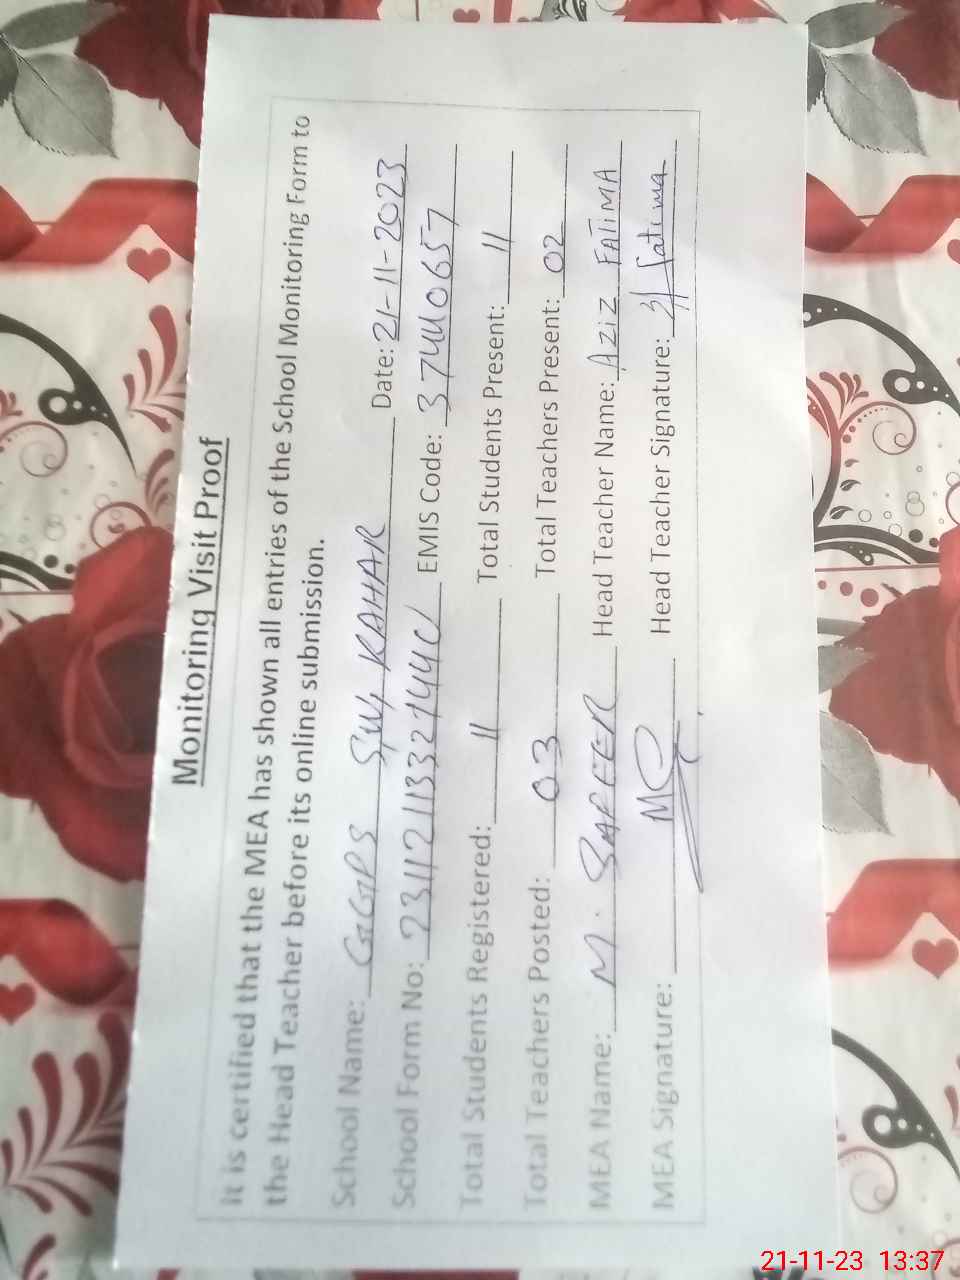 Monitoring Visit Proof
It is certified that the MEA has shown all entries of the School Monitoring Form to
the Head Teacher before its online submission.
School Name: GGPS KAHAR Date: 21-11-2023
School Form No: EMIS Code: 37440657
Total Students Registered: 11 Total Students Present: 11
Total Teachers Posted: 03 Total Teachers Present: 02
MEA Name: M. SAFEER Head Teacher Name: AZIZ FATIMA
MEA Signature: Head Teacher Signature: fatima
21-11-23 13:37